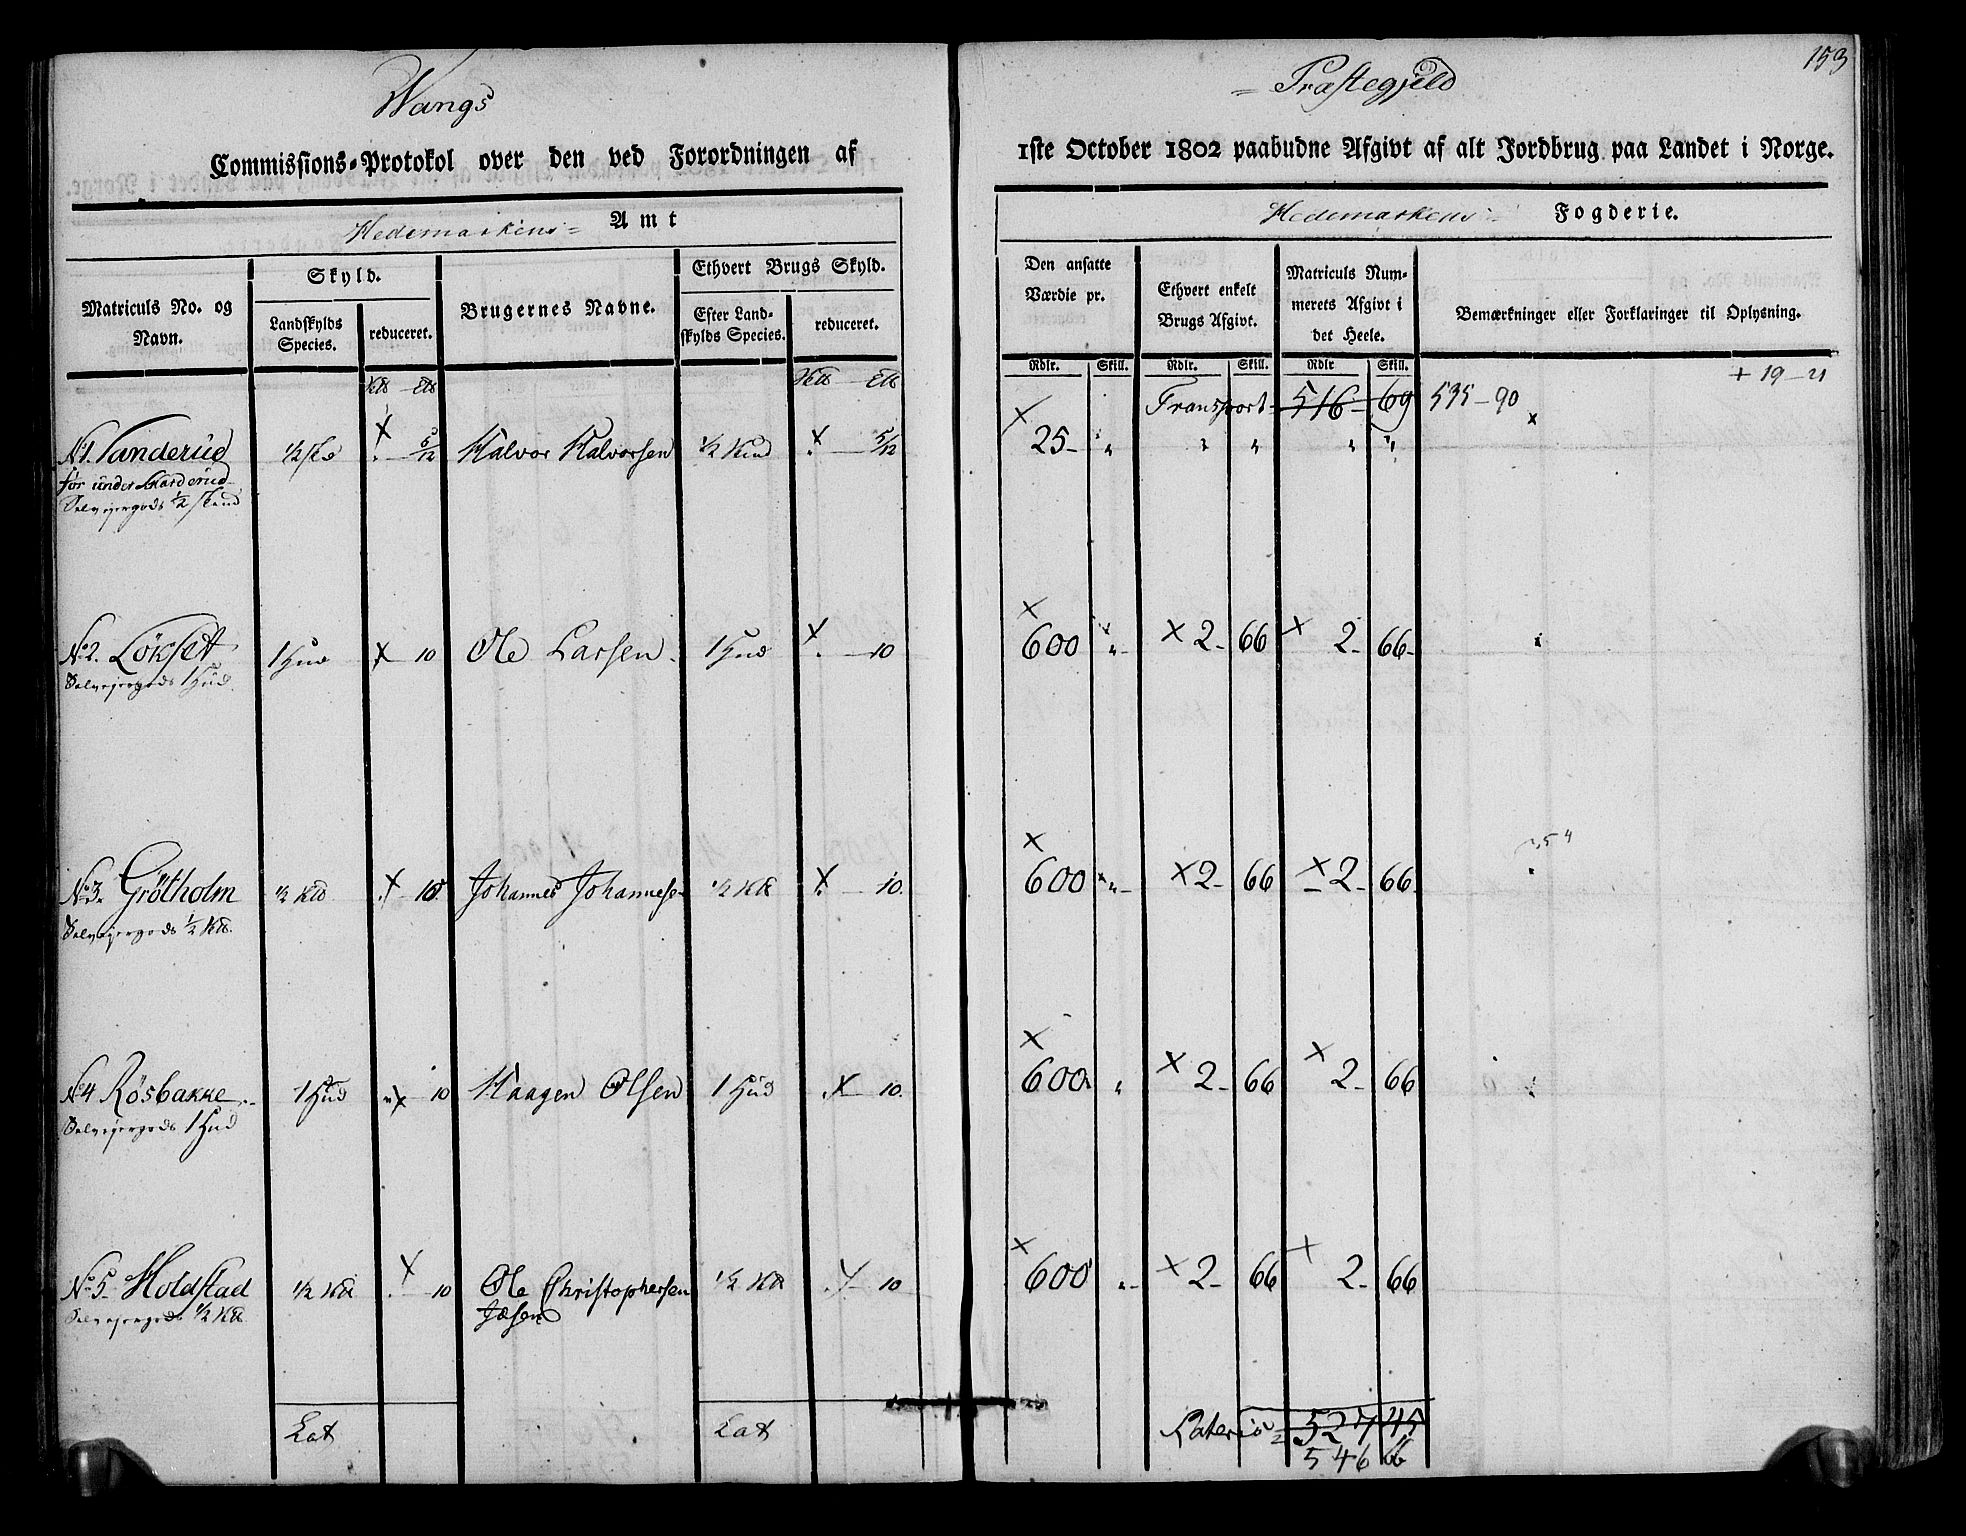 153
Wangs = Præstegjeld
Commissions-Protokol over den ved Forordningen af 1ste October 1802 paabudne Afgivt af alt Jordbrug paa Landet i Norge.
Hedemarkens = Amt
Hedemarkens = Fogderie.
Matriculs No. og Navn.
Skyld.
Landskylds Species.
reduceret.
Brugernes Navne.
Ethvert Brugs Skyld.
Efter Landskylds Species.
reduceret.
Den ansatte Værdie pr.
Ethvert enkelt Brugs Afgivt.
Matriculs Nummerets Afgivt i det Heele.
Bemærkninger eller Forklaringer til Oplysning.
Rdlr. Skill. Rdlr. Skill. Rdlr Skill.
+ 19 - 21
Transport - 516 - 69 535 - 90
N1. Vanderud 5/12 Halvor Halvorsen 5/12 25 - "
før under
Selvejergods 1/2 Skind
N.2. Lökset 1 Hud X 10 Ole Larsen 1 Hud X 10 600 " - X 2 - 66 X 2 - 66 -
Selvejergods 1 Hud
N.3. Grötholm 1/2 Kld X 10. Johannes Johannesen 1/2 Kld X 10. 600 " - X 2 - 66 X 2 - 66.
Selvejergods 1/2 Kld.
N.4 Rösbakke 1 Hud X 10 Haagen Olsen 1 Hud X 10. 600 " X 2 - 66 X 2 - 66
Selvejergods 1 Hud
N.5. Holdstad 1/2 Kld X 10 Ole Christophersen 1/2 Kld 10 600 " - X 2 - 66 X 2 - 66
Selvejergods 1/2 Kld.
Lat Lat Lateris = 527 45
546 66